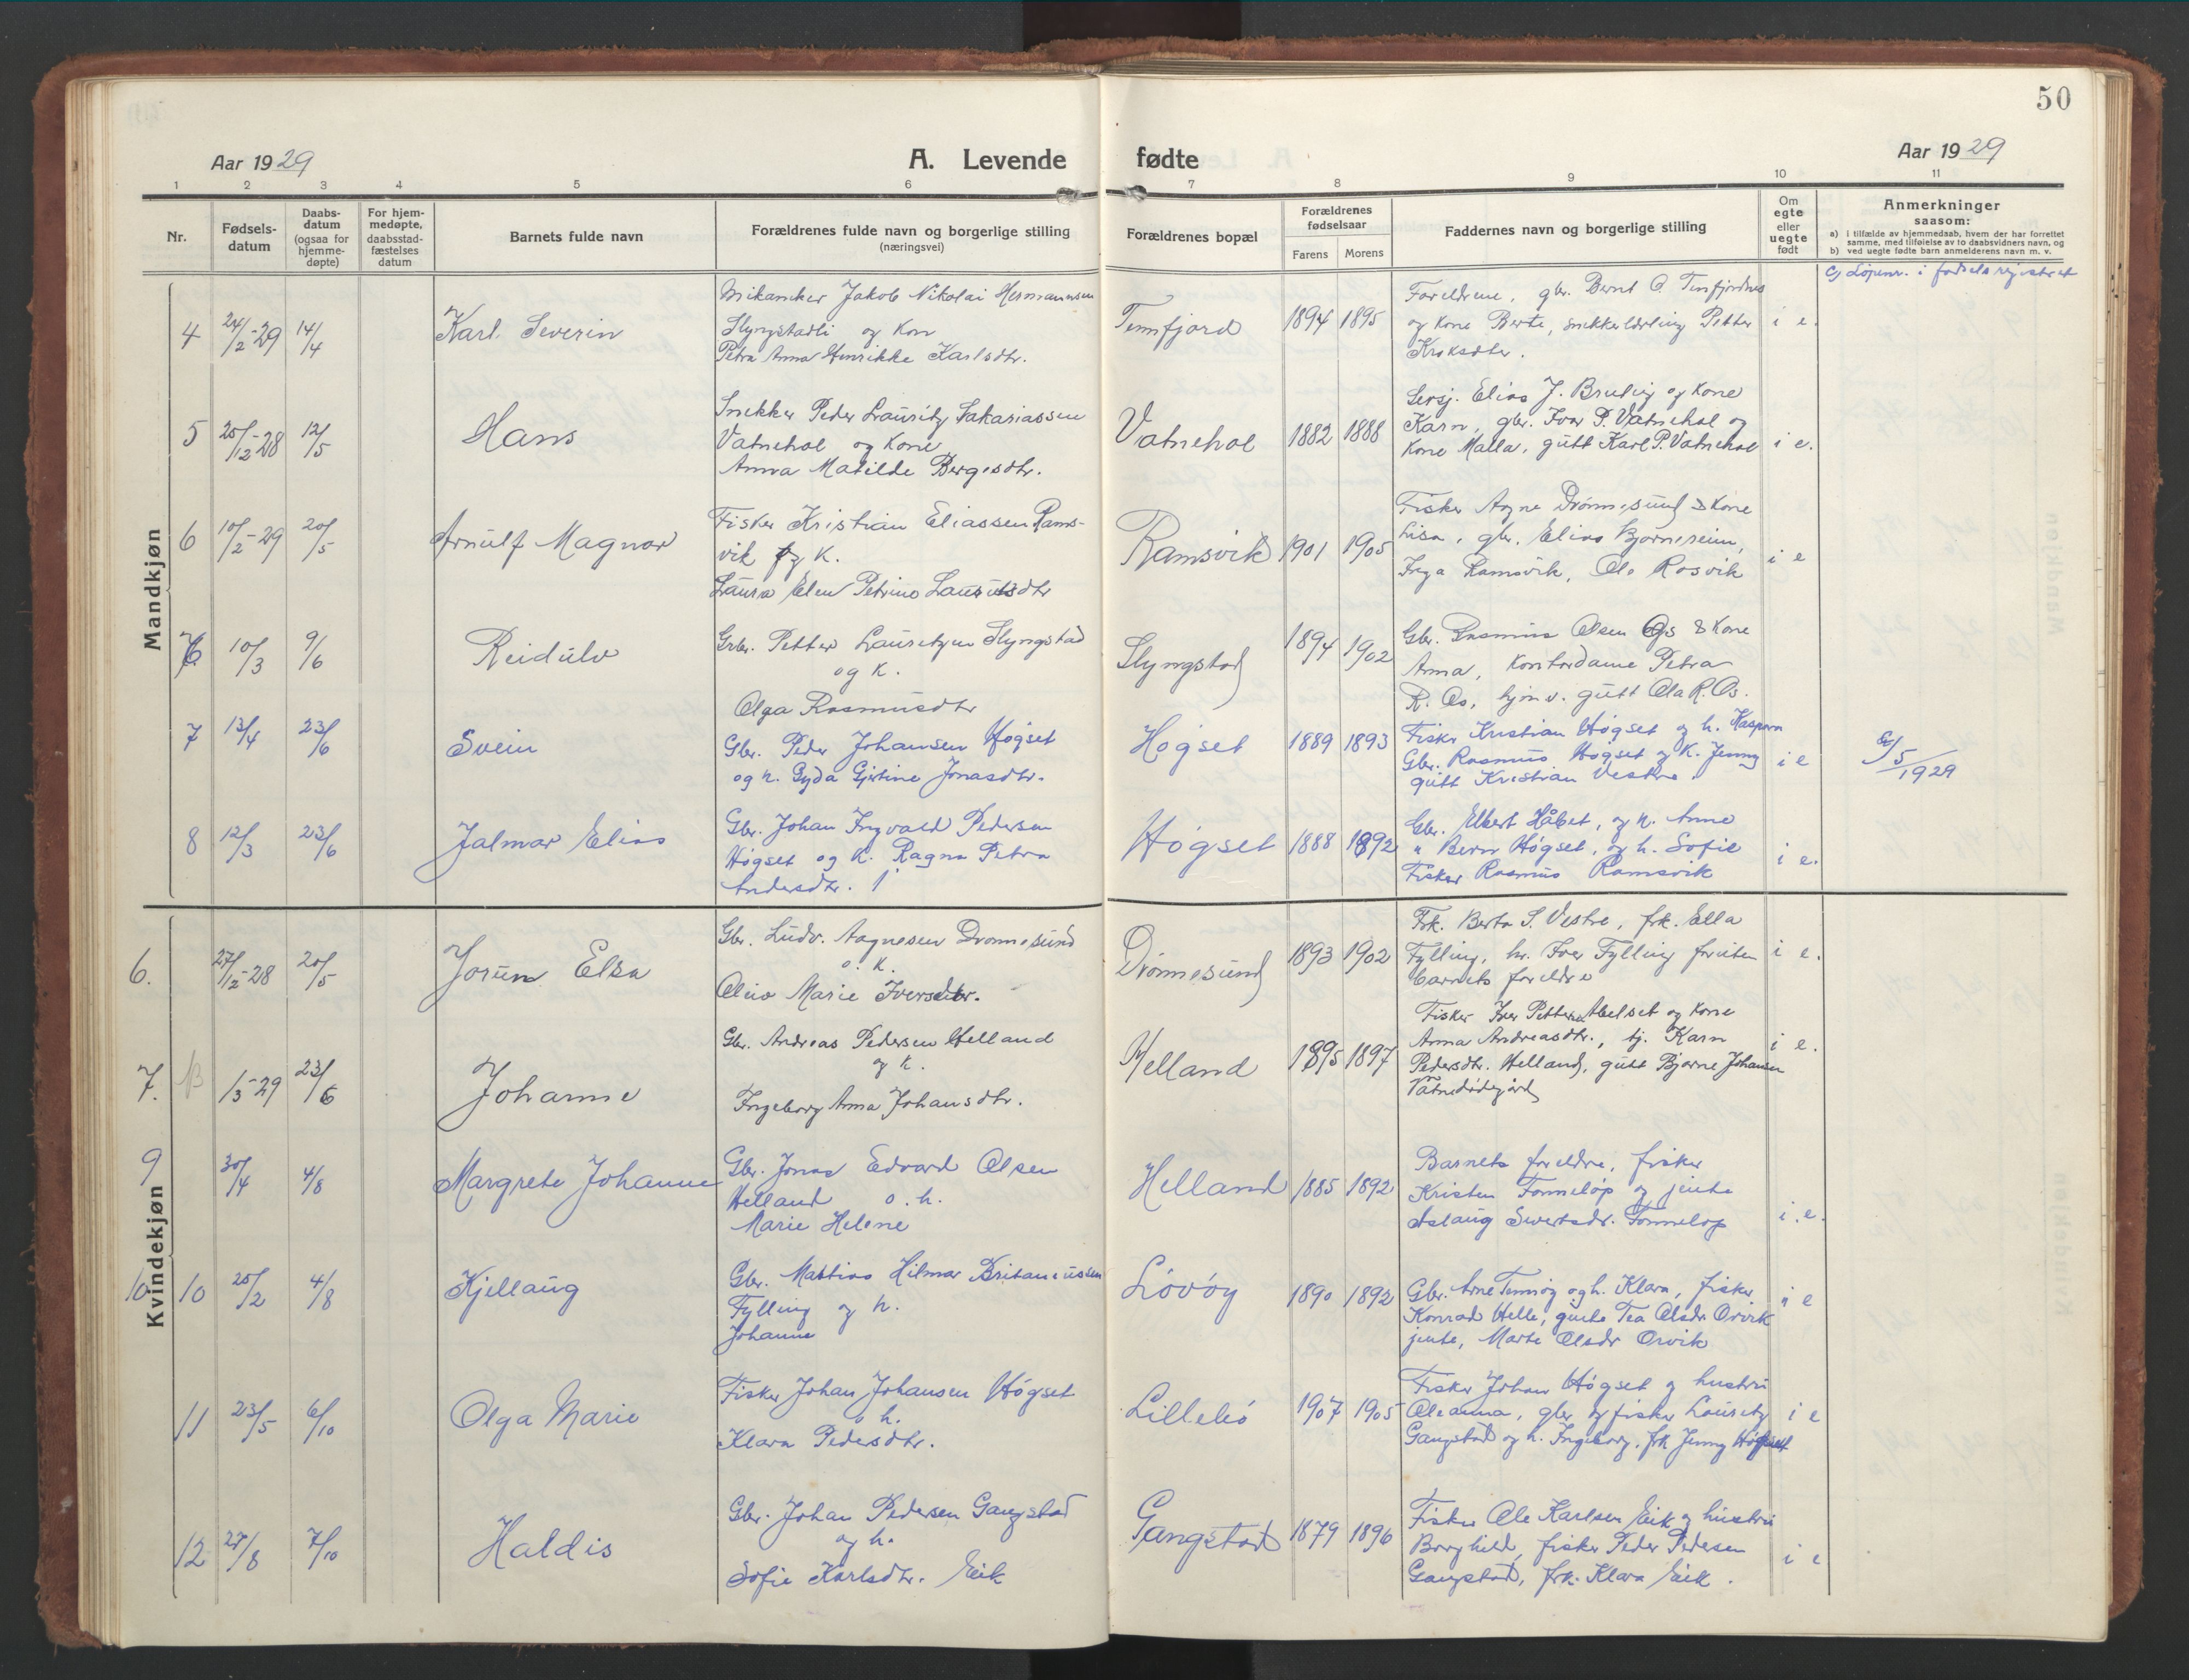 50
Aar 1929
A. Levende fødte
Aar 1929
1 2 3 4 5 6 7 8 9 10 11
Nr.
Fødsels-
datum
Daabs-
datum
(ogsaa for
hjemme-
døpte)
For hjem-
medøpte,
daabsstad-
fæstelses
datum
Barnets fulde navn
Forældrenes fulde navn og borgerlige stilling
(næringsvei)
Forældrenes bopæl
Forældrenes
fødselsaar
Farens Morens
Faddernes navn og borgerlige stilling
Om
egte
eller
uegte
født
Anmerkninger
saasom:
a) i tilfælde av hjemmedaab, hvem der har forrettet
samme, med tilføielse av to daabsvidners navn, og
b) ved uegte fødte barn anmelderens navn m. v.
c) Løpenr. i fødselsregistret
Mandkjøn
4 24/2-29 14/4 Karl Severin
Mekaniker Jakob Nikolai Hermannsen
Slyngstadli og kon
Petra Anna Henrikke Karlsdtr.
Tennfjord 1894 1895
Foreldrene, gbr. Bernt O. Tenfjordnes
og kone Berte, snekkerlærling Petter
i e.
5 25/12-28 12/5 Hans
Snekker Peder Lauritz Sakariassen
Vatnehol og kone
Anna Matilde Bergesdtr.
Vatnehol 1882 1888
Sersj. Elias J. Brudig og kone
Karn, gbr. Ivar P. Vatnehol og
kone Malla, gutt Karl P. Vatnehol
i e.
6 10/2-29 20/5 Arnulf Magnar
Fisker Kristian Eliassen Rams-
vik og k.
Laura Elen Petrine Lauritsdtr
Ramsvik 1901 1905
Fisker Agne Drønnesund & kone
Lisa, gbr. Elias Bjørnereim,
Inga Ramsvik, Ole Rosvik
i e
6 10/3 9/6 Reidulv
Grbr. Petter Lauritzen Slyngstad
og k.
Olga Rasmusdtr
Slyngstad 1894 1902
Gbr. Rasmus Olsen Os & kone
Anna, kontordame Petra
R. Os, gutt Ola R. Os.
7 13/4 23/6 Svein
Gbr. Peder Johansen Høgset
og k. Gyda Gjertine Jonasdtr.
Høgset 1889 1893
Fisker Kristian Høgset og h. Kaspara
Gbr. Rasmus Høgset og k. Jenny
gutt Kristian Vestre
i e
/5 1929
8 12/3 23/6 Jalmar Elias
Gbr. Johan Ingvald Pedersen
Høgset og k. Ragna Petra
Andersdtr.
Høgset 1888 1892
Gbr. Elbert Håbet, og k. Anne
" Bernt Høgset, og h. Sofie
Fisker Rasmus Ramsvik
i e.
Kvindekjøn
6. 27/12-28 20/5 Jorun Elsa
Gbr. Ludv. Aagnesen Drønnesund
o. k.
Oline Marie Iversdtr.
Drønnesund 1893 1902
Frk. Berta S. Vestre, frk. Ella
Fylling, hr. Iver Fylling foruten
barnets foreldre
i e.
7. 1/3-29 23/6 Johanne
Gbr. Andreas Pedersen Helland
og k.
Ingeborg Anna Johansdtr.
Helland 1895 1897
Fisker Iver Pettersen Abelset og kone
Anna Andreasdtr., tj. Karn
Pedersdtr. Helland, gutt Bjarne Johansen
i e.
9 30/4 4/8 Margrete Johanne
Gbr. Jonas Edvard Olsen
Helland o. h.
Marie Helene
Helland 1885 1892
Barnets foreldre, fisker
Kristen Tonneløp og jente
Aslaug Sivertsdr. Tonneløp
i. e.
10 10 25/2 4/8 Kjellaug
Gbr. Mattias Hilmar Britaniussen
Fylling og h.
Johanne
Løvøy 1890 1892
Gbr. Arne Tennøy og h. Klara, fisker
Konrad Helle, gjente Tea Olsdr. Orvik
jente, Marte Olsdr Orvik
i e
11 23/5 6/10 Olga Marie
Fisker Johan Johansen Høgset
o h.
Klara Pedersdtr.
Lillebø 1907 1905
Fisker Johan Høgset og hustru
Oleanna, gbr og fisker Lauritz
Gangstad og h. Ingeborg, frk Jenny Høgset
i e
12 27/8 7/10 Haldis
Gbr. Johan Pedersen Gangstad
og h.
Sofie Karlsdtr. Eik
Gangstad 1879 1896
Fisker Ole Karlsen Eik og hustru
Borghild, fisker Peder Pedersen
Gangstad, frk. Klara Eik.
i e